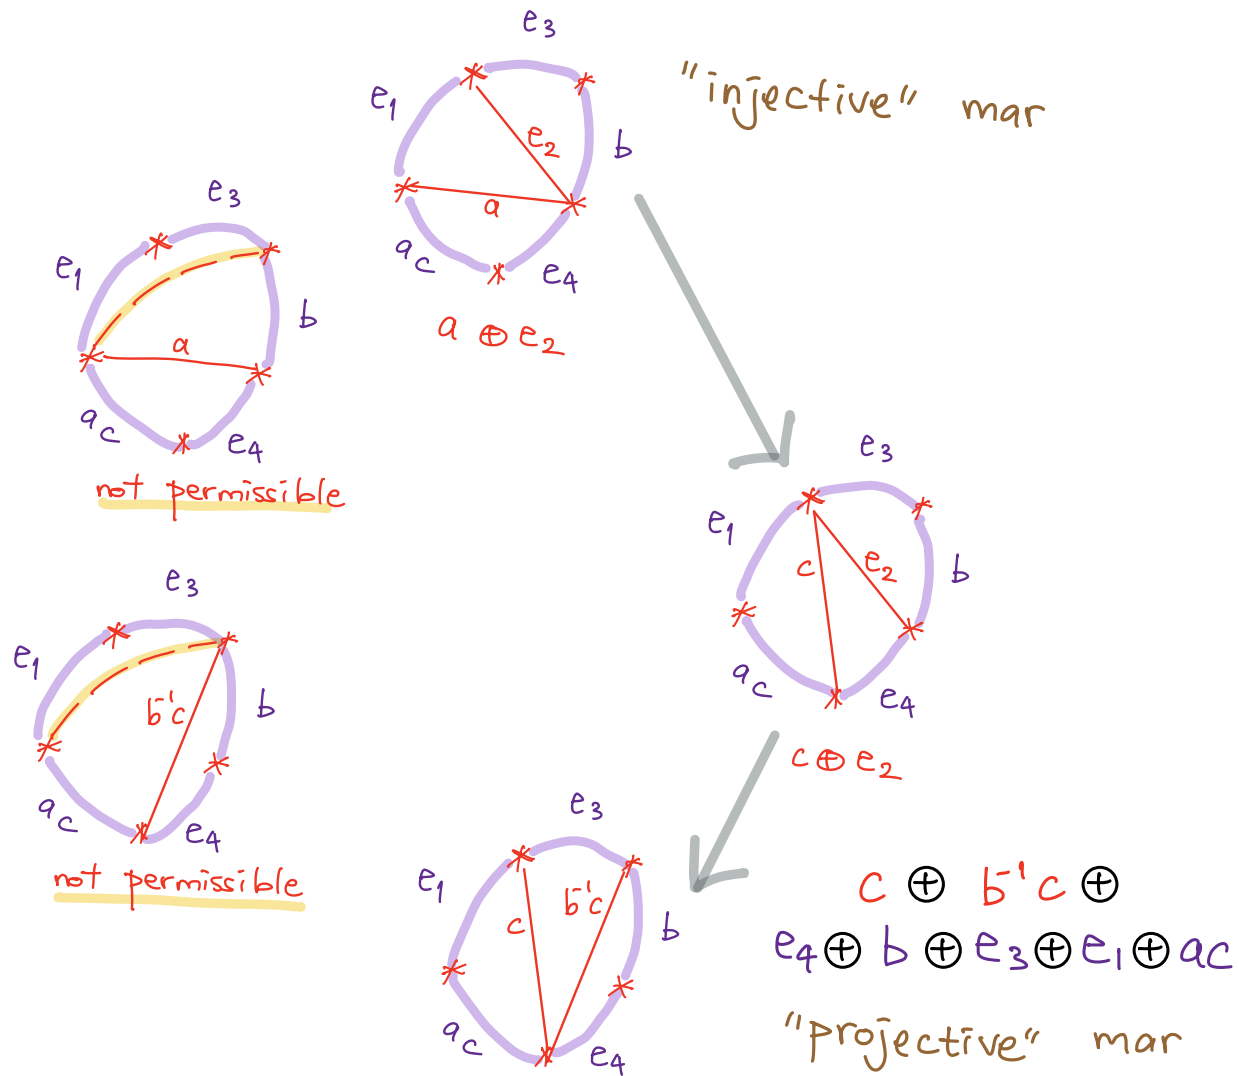 e3
"injective" mar
e1
e2
b
a
ac
e4
a ⊕ e2
e3
e1
b
a
ac
e4
not permissible
e3
e1
c
e2
b
ac
e4
c ⊕ e2
e3
e1
b⁻¹c
b
ac
e4
not permissible
e3
e1
c
b⁻¹c
b
ac
e4
c ⊕ b⁻¹c ⊕
e4 ⊕ b ⊕ e3 ⊕ e1 ⊕ ac
"projective" mar